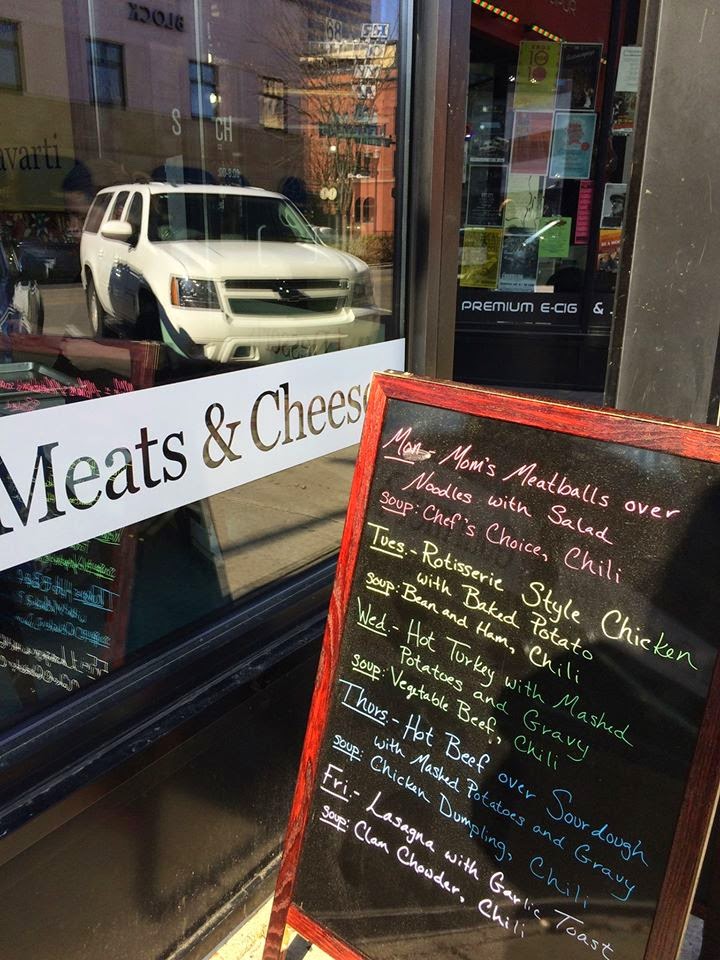 BLOCK
avarti
S CH
Meats & Cheese
PREMIUM E-CIG &
Mon- Mom's Meatballs over
Noodles with Salad
soup: Chef's Choice, Chili
Tues.- Rotisserie Style Chicken
with Baked Potato
soup: Bean and Ham, Chili
Wed.- Hot Turkey with Mashed
Potatoes and Gravy
soup: Vegetable Beef, Chili
Thurs.- Hot Beef over Sourdough
with Mashed Potatoes and Gravy
soup: Chicken Dumpling, Chili
Fri.- Lasagna with Garlic Toast
soup: Clam Chowder, Chili